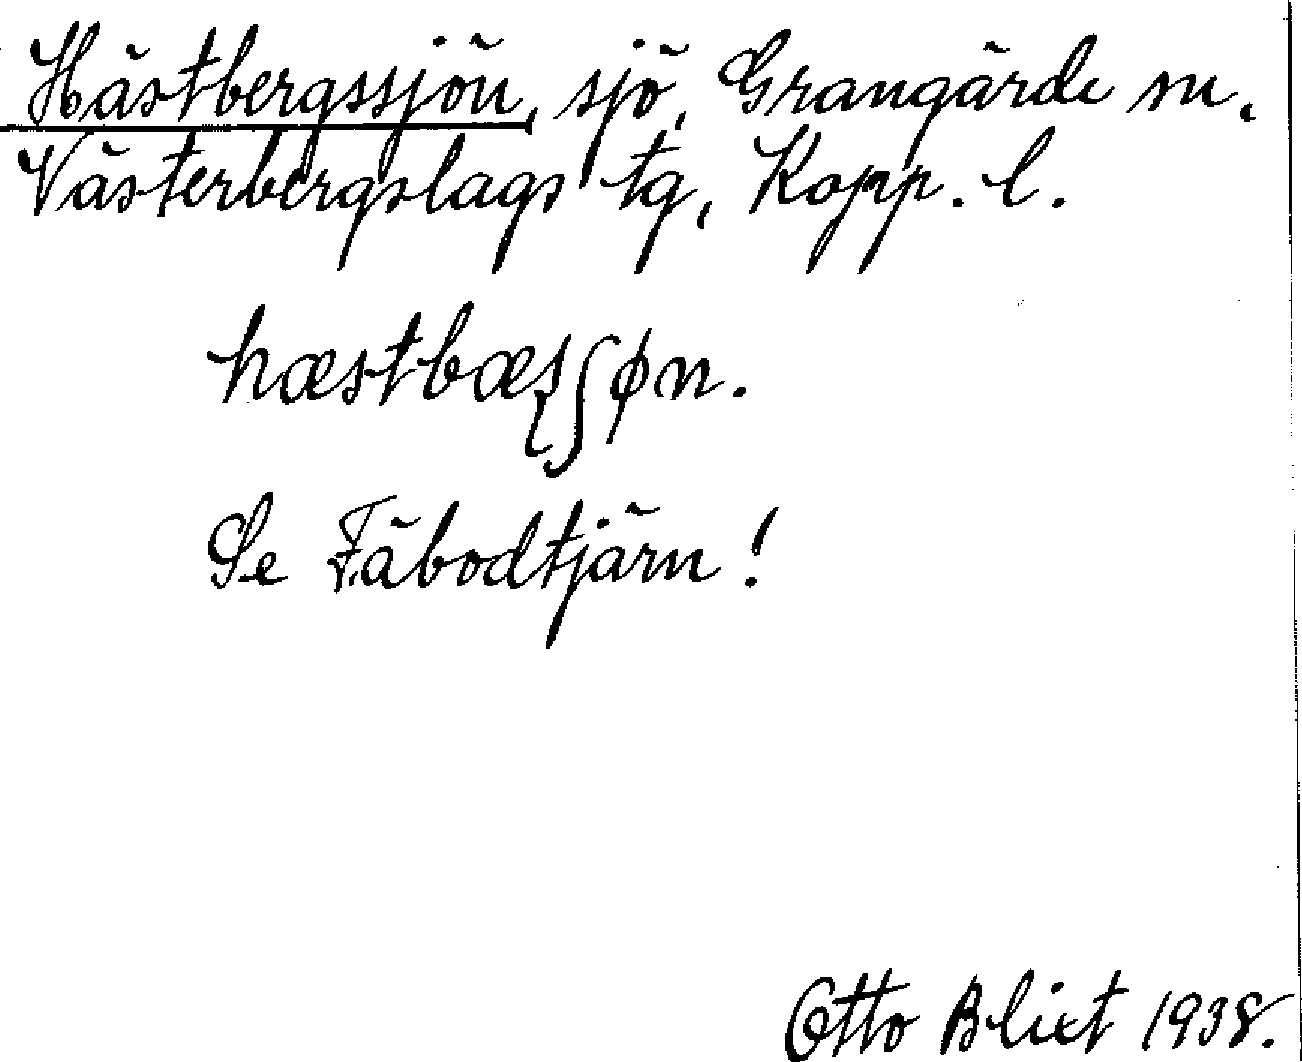 Hästbergssjön, sjö, Grangärde sn.
Västerbergslags tg, Kopp. l.
hæstbæʂʃøn.
Se Fäbodtjärn!
Otto Blixt 1938.